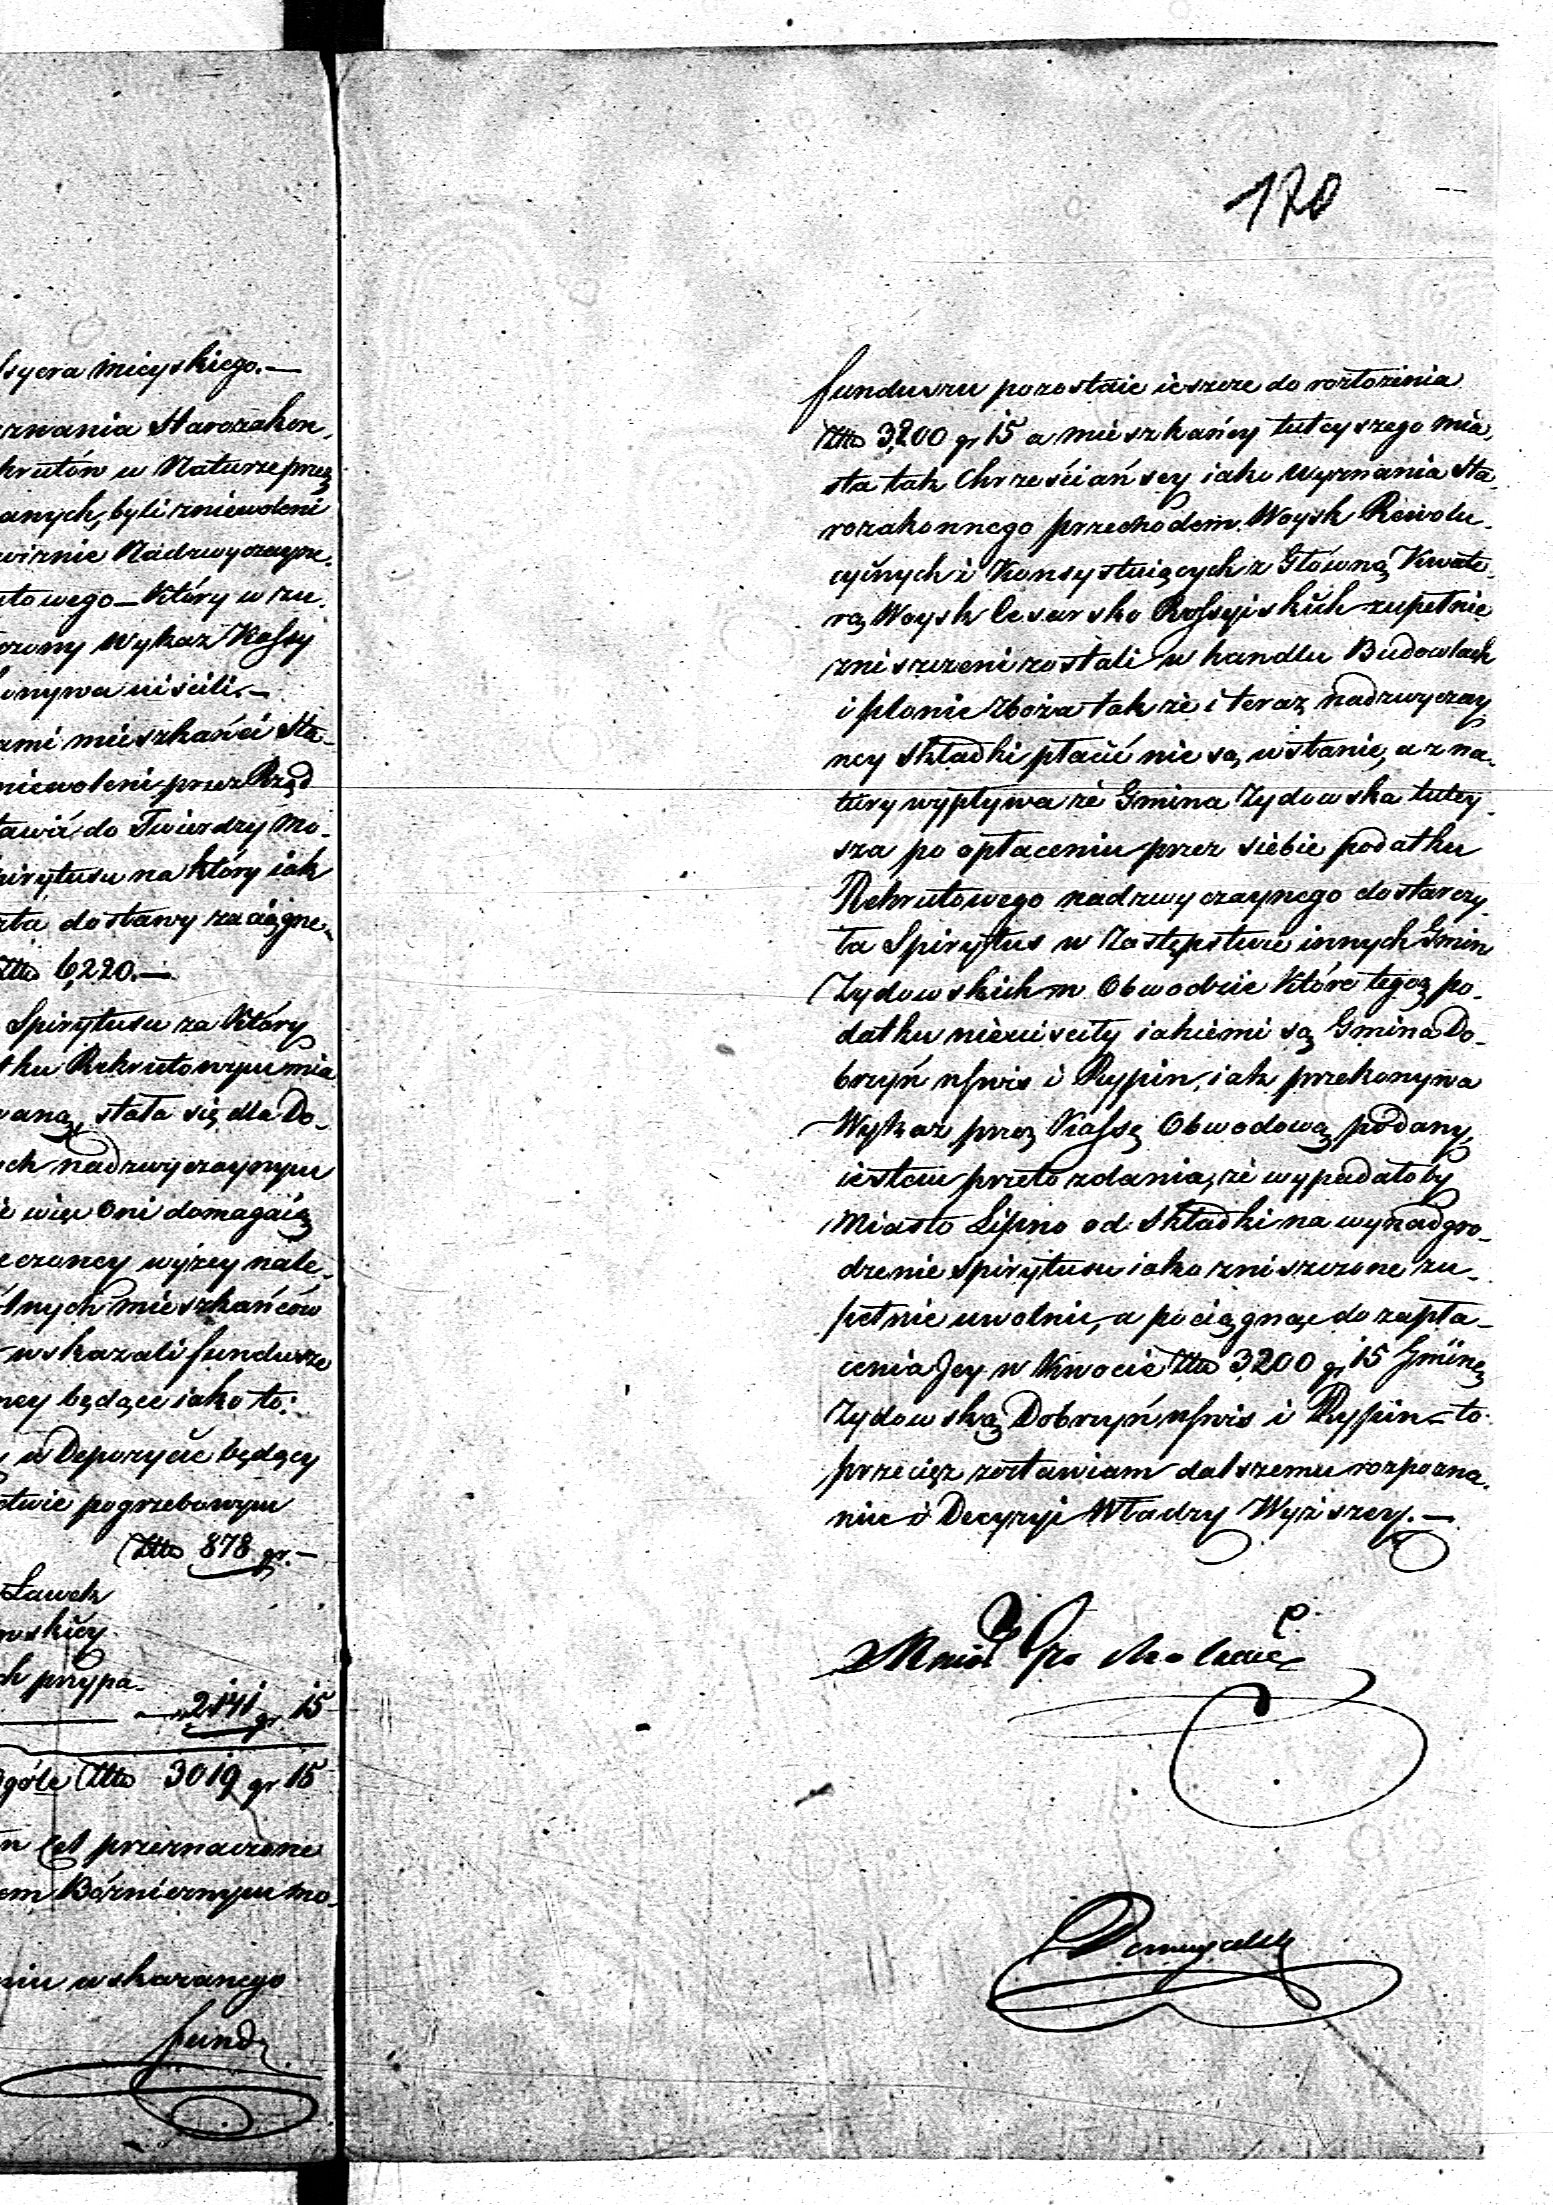 lsyera mieyskiego.—
znania Starozakon-
krutów w Naturze przez
anych, byli zniewoleni
wiznie Nadzwyczayne-
utowego – Który w zu-
czony Wykaz Kassy
konywa uiścili.—
ami mieszkańci Sta-
niewoleni przez Rząd
tawić do Twierdzy Mo-
pirytusu na który iak
zta dostawy zaciągne-
Złto 6,220.—
Spirytusu za Który
tku Rekrutowym mia
waną, stała się dla Do-
ch nadzwyczaynym
więc Oni domagaią
eczoney wyżey nale-
lnych mieszkańców
wskazali fundusze
ney będące iako to:
w Depozycie będący
stwie pogrzebowym
Złto 878 gr.—
Ławek
wskiey
ch przypa-
— „2141 gr 15
Ogóle Złto 3019 gr 15
n Cel przeznaczone
em Bóżnicznym mo-
niu wskazanego
fundu
120
funduszu pozostaie ieszcze do rozłożenia
Złto 3,200 gr 15 a mieszkańcy tuteyszego mia-
sta tak Chrześciańscy iako Wyznania Sta-
rozakonnego przechodem Woysk Rewolu-
cyinych i Konsystuiących z Główną Kwate-
rą Woysk Cesarsko Rossyiskich zupełnie
zniszczeni zostali w handlu Budowlach
i plonie zboża tak że i teraz nadzwyczay
ney składki płacić nie są w stanie, a z na-
tury wypływa że Gmina Żydowska tutey-
sza po opłaceniu przez siebie podatku
Rekrutowego nadzwyczaynego dostarczy-
ła Spirytus w Zastępstwie innych Gmin
Żydowskich w Obwodzie które tegoż po-
datku nieuiściły iakiemi są Gmina Do-
brzyń n/wis i Rypin, iak przekonywa
Wykaz przez Kassę Obwodową podany,
iestem przeto zdania, że wypadałoby
Miasto Lipno od Składki na wynadgro-
dzenie spirytusu iako zniszczone zu-
pełnie uwolnić, a pociągnąć do zapła-
cenia Jey w Kwocie Złto 3,200 gr 15 Gminę
Żydowską Dobrzyń n/wis i Rypin – to
przecięż zostawiam dalszemu rozpozna-
niu i Decyzyi Władzy Wyższey.—